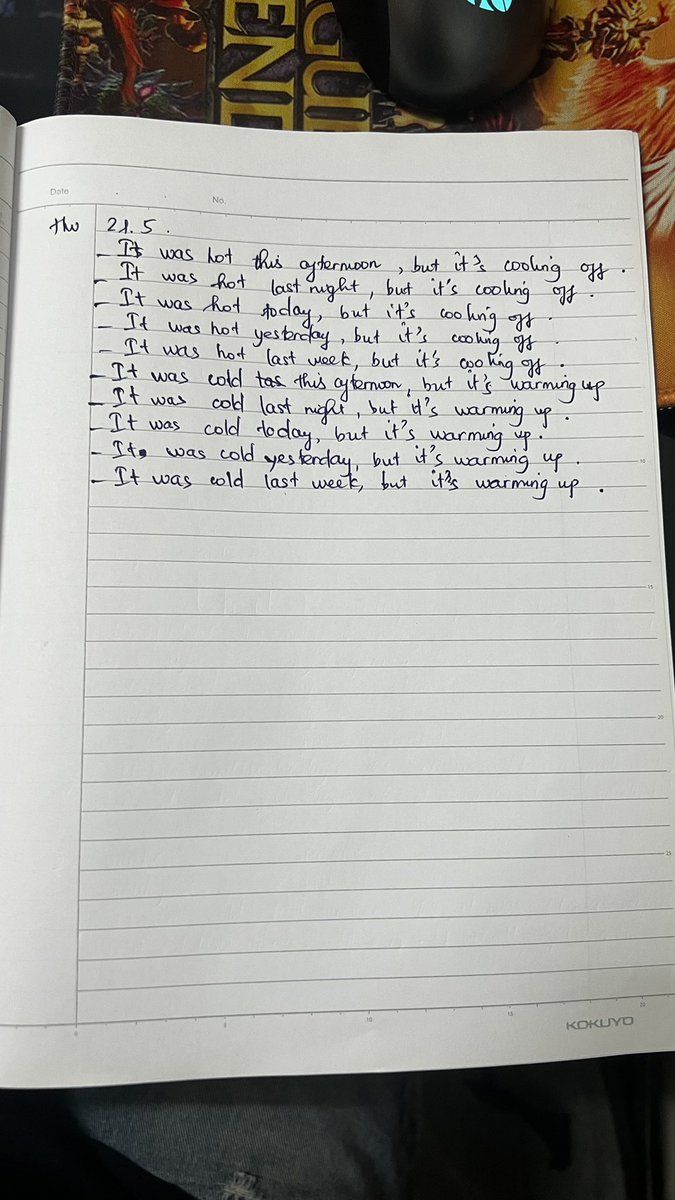 GUE
END
Date
No.
thu 21.5.
- It was hot this afternoon, but it's cooling off.
- It was hot last night, but it's cooling off.
- It was hot today, but it's cooling off.
- It was hot yesterday, but it's cooling off
- It was hot last week, but it's cooling off.
- It was cold this afternoon, but it's warming up
- It was cold last night, but it's warming up.
- It was cold today, but it's warming up.
- It was cold yesterday, but it's warming up.
- It was cold last week, but it's warming up.
5
10
15
20
25
0 5 10 15 20
KOKUYO